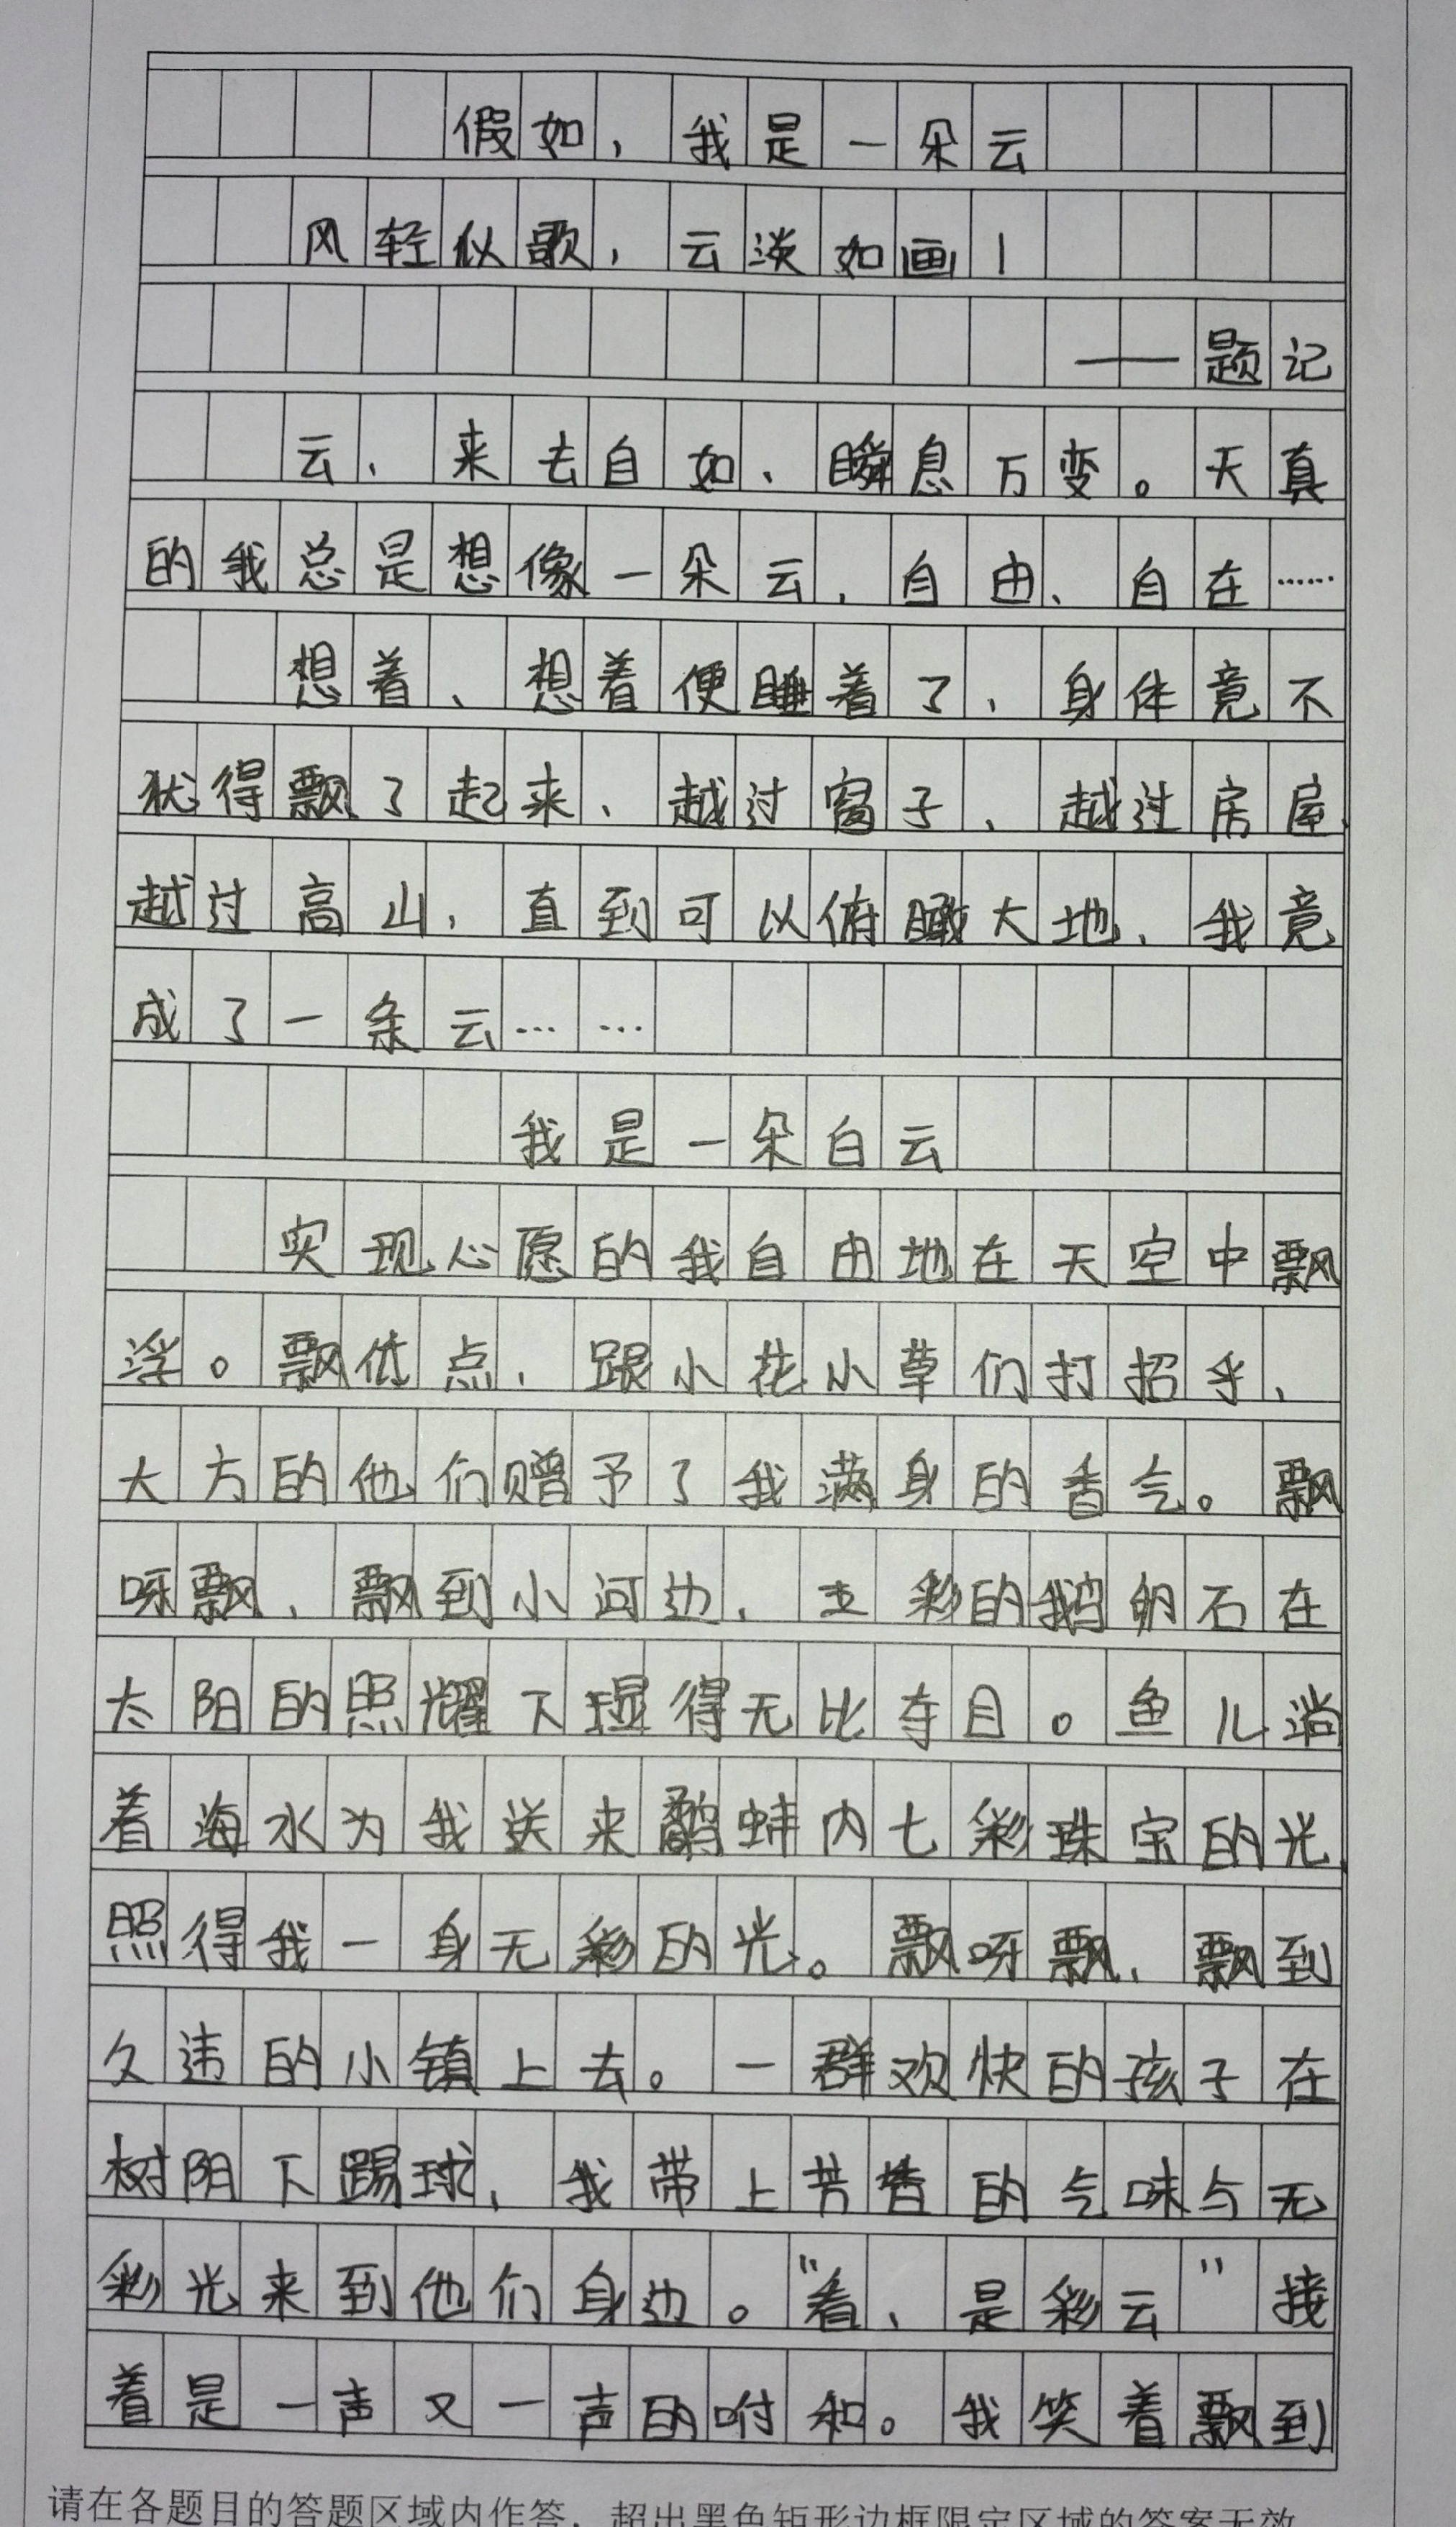 假如，我是一朵云
风轻似歌，云淡如画！
——题记
云，来去自如、瞬息万变。天真
的我总是想像一朵云，自由、自在……
想着、想着便睡着了，身体竟不
犹得飘了起来、越过窗子、越过房屋、
越过高山，直到可以俯瞰大地，我竟
成了一条云……
我是一朵白云
实现心愿的我自由地在天空中飘
浮。飘低点，跟小花小草们打招乎，
大方的他们赠予了我满身的香气。飘
呀飘，飘到小河边，五彩的鹅卵石在
太阳的照耀下显得无比夺目。鱼儿淌
着海水为我送来鹬蚌内七彩珠宝的光，
照得我一身无彩的光。飘呀飘，飘到
久违的小镇上去。一群欢快的孩子在
树阴下踢球，我带上芳香的气味与无
彩光来到他们身边。“看，是彩云”接
着是一声又一声的咐和。我笑着飘到
请在各题目的答题区域内作答，超出黑色矩形边框限定区域的答案无效